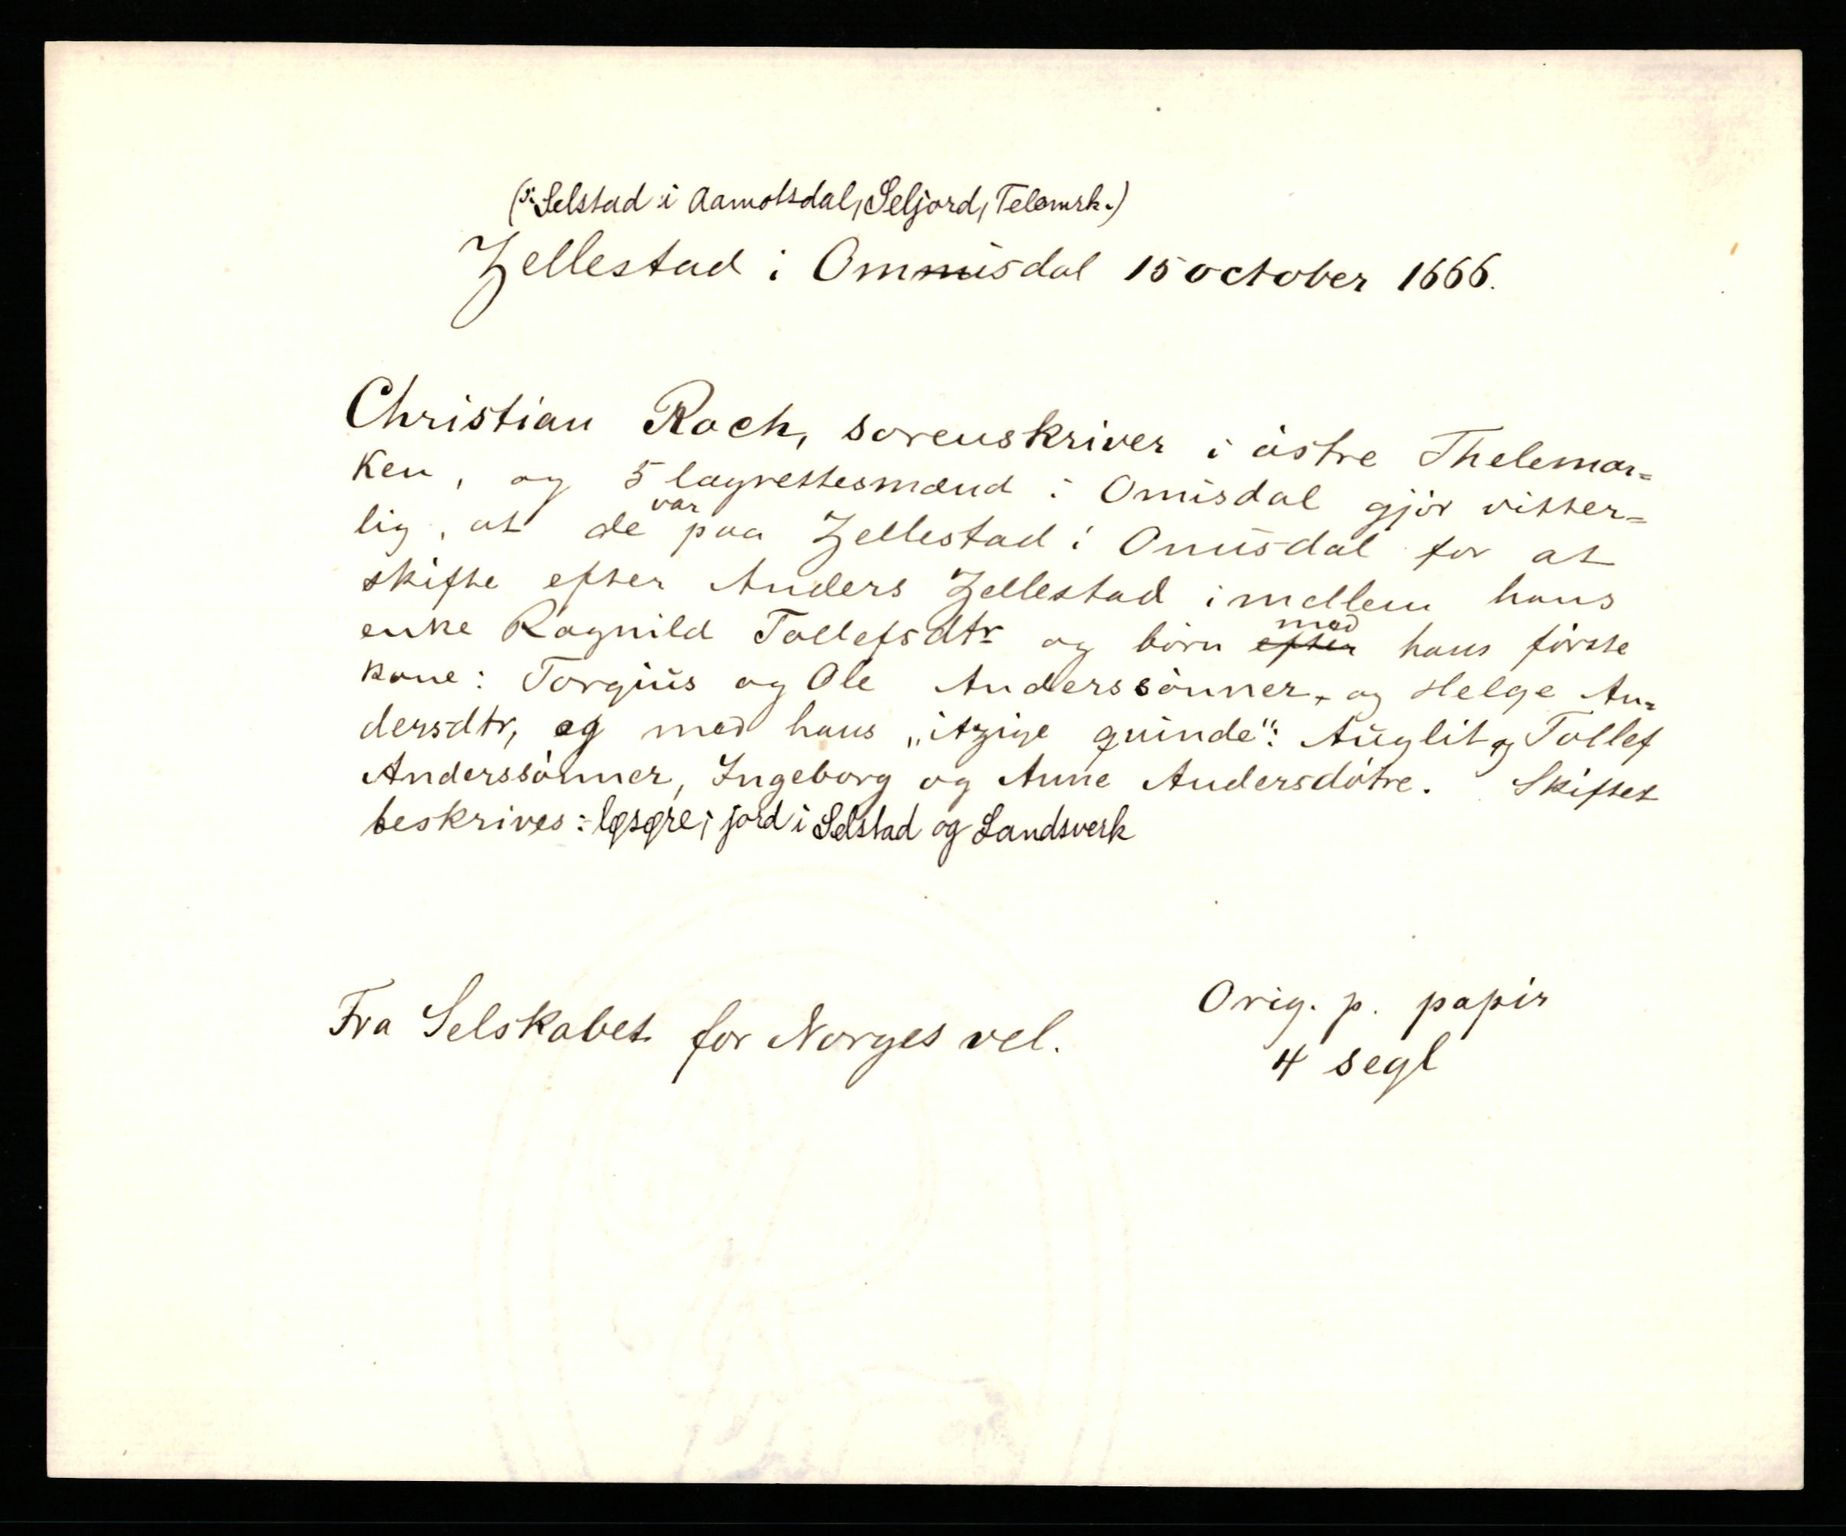 (ɔ: Selstad i Aamotsdal, Seljord, Telemrk.)
Zellestad i Ommisdal 15 october 1666.
Christian Roch, sorenskriver i östre Thelemar=
ken, og 5 lagrettesmænd i Omisdal gjör vitter=
lig, at de var paa Zellestad i Omisdal for at
skifte efter Anders Zellestad imellem hans
enke Ragnild Tollefsdtr og börn efter med hans förste
kone: Torgius og Ole Anderssönner, og Helge An=
dersdtr, og med hans „itzige quinde“: Aŭglit og Tollef
Anderssönner, Ingeborg og Anne Andersdötre. Skiftet
beskrives: løsøre; jord i Selstad og Landsverk
Fra Selskabet for Norges vel.
Orig. p. papir
4 segl